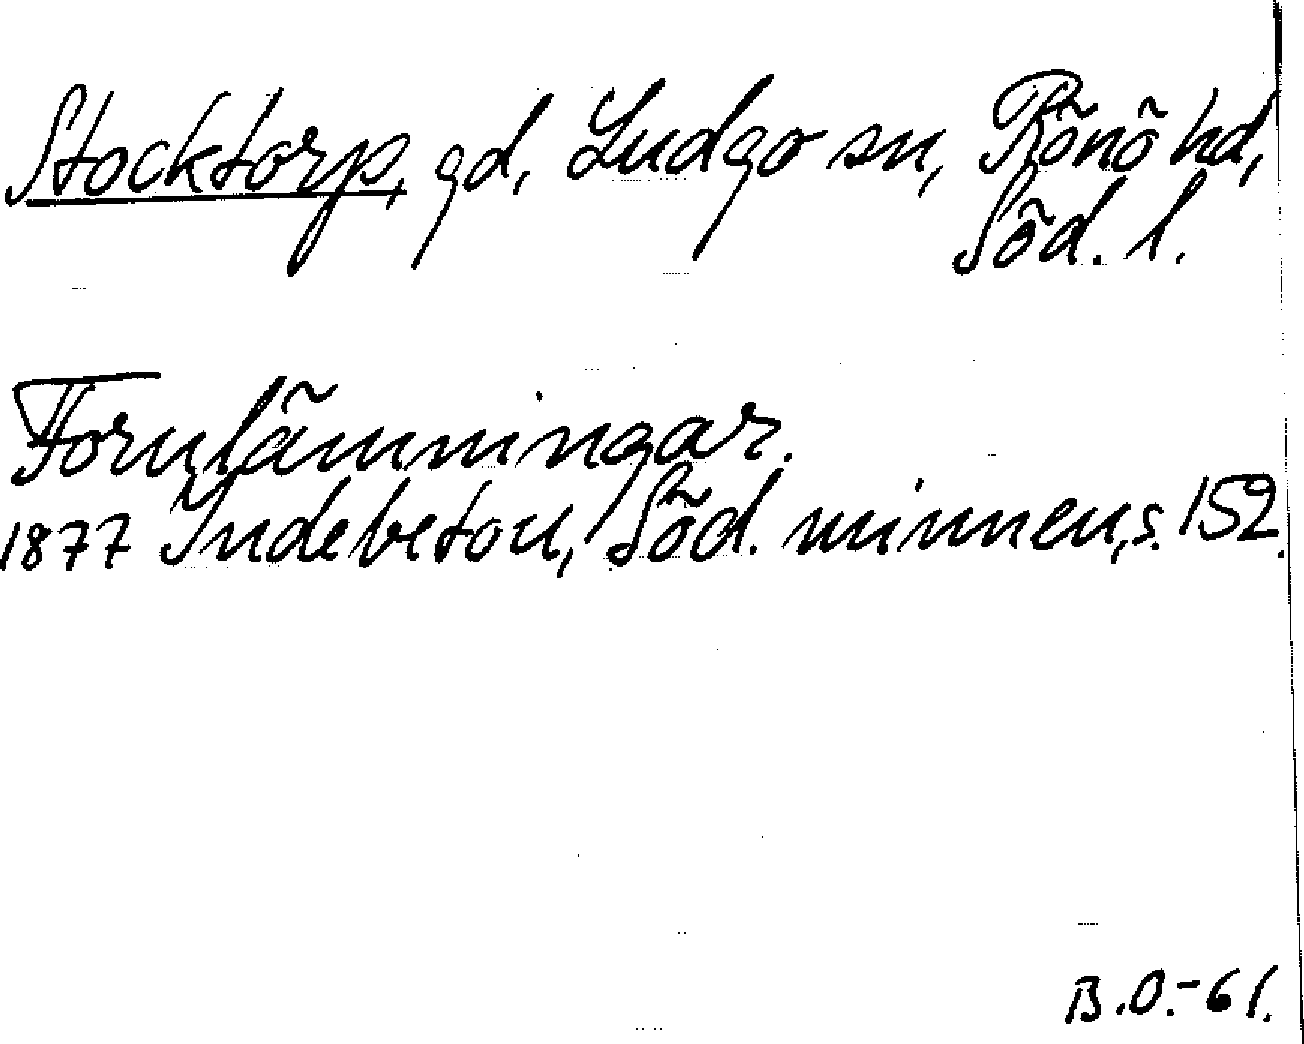 Stocktorp, gd, Ludgo sn, Rönö hd,
Söd. l.
Fornlämningar.
1877 Indebetou, Söd. minnen, s. 152.
B.O.-61.